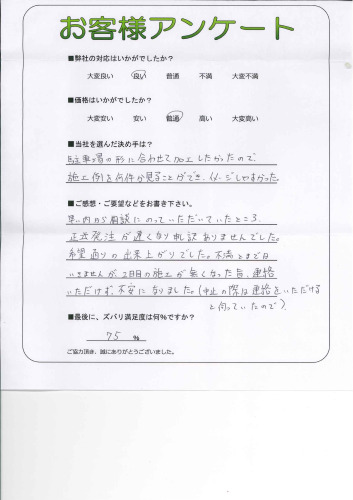 お客様アンケート
■弊社の対応はいかがでしたか?
大変良い 良い 普通 不満 大変不満
■価格はいかがでしたか?
大変安い 安い 普通 高い 大変高い
■当社を選んだ決め手は?
駐車場の形に合わせて加工したかったので、
施工例を何件か見ることができ、イメージしやすかった
■ご感想・ご要望などをお書き下さい。
早い内から相談にのっていただいていたところ、
正式発注が遅くなり申し訳ありませんでした。
希望通りの出来上がりでした。不満とまでは
いきませんが、2日目の施工が無くなった旨、連絡
いただけず、不安になりました。(中止の際は連絡をいただける
と伺っていたので)
■最後に、ズバリ満足度は何%ですか?
75 %
ご協力頂き、誠にありがとうございました。